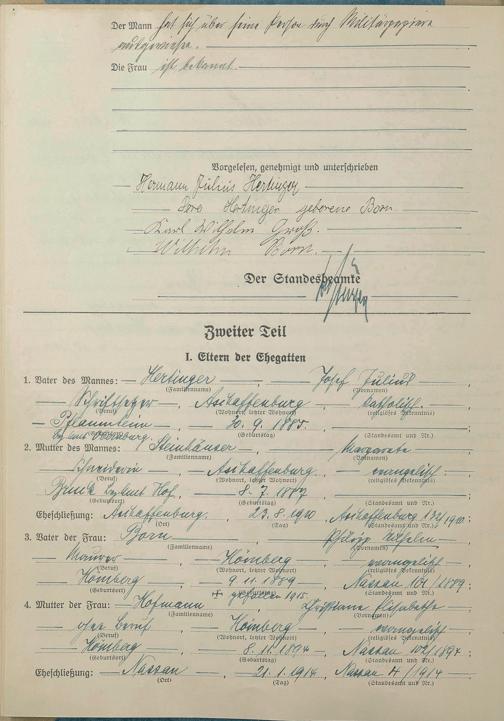 Der Mann hat sich über seine Person durch Militärpapiere
ausgewiesen.
Die Frau ist bekannt.
Vorgelesen, genehmigt und unterschrieben
Hermann Julius Hertinger
Hertinger geborene Born
Karl Wilhelm Groß.
Wilhelm Born.
Der Standesbeamte
Zweiter Teil
I. Eltern der Ehegatten
1. Vater des Mannes: Hertinger, Josef Julius
(Familienname) (Vornamen)
Schriftsetzer, Aschaffenburg, katholisch.
(Beruf) (Wohnort, letzter Wohnort) (religiöses Bekenntnis)
30. 9. 1885.
(Geburtstag) (Standesamt und Nr.)
2. Mutter des Mannes: Steinhäuser, Margarete
(Familienname) (Vornamen)
Aschaffenburg. evangelisch
(Beruf) (Wohnort, letzter Wohnort) (religiöses Bekenntnis)
Hof, 8. 7.
(Geburtsort) (Geburtstag) (Standesamt und Nr.)
Eheschließung: Aschaffenburg, 23. 8. 1910 Aschaffenburg 132/1910.
(Ort) (Tag) (Standesamt und Nr.)
3. Vater der Frau: Born Wilhelm
(Familienname) (Vornamen)
Maurer, Hömberg evangelisch
(Beruf) (Wohnort, letzter Wohnort) (religiöses Bekenntnis)
Hömberg, 9. 11. 1889 Nassau 101/1889.
(Geburtsort) (Geburtstag) (Standesamt und Nr.)
+ gefallen 1915
4. Mutter der Frau: Hofmann, Elisabethe
(Familienname) (Vornamen)
ohne Beruf Hömberg evangelisch
(Beruf) (Wohnort, letzter Wohnort) (religiöses Bekenntnis)
Hömberg, 8. 11. 1894 Nassau 102/1894.
(Geburtsort) (Geburtstag) (Standesamt und Nr.)
Eheschließung: Nassau 1. 1914, Nassau /1914
(Ort) (Tag) (Standesamt und Nr.)